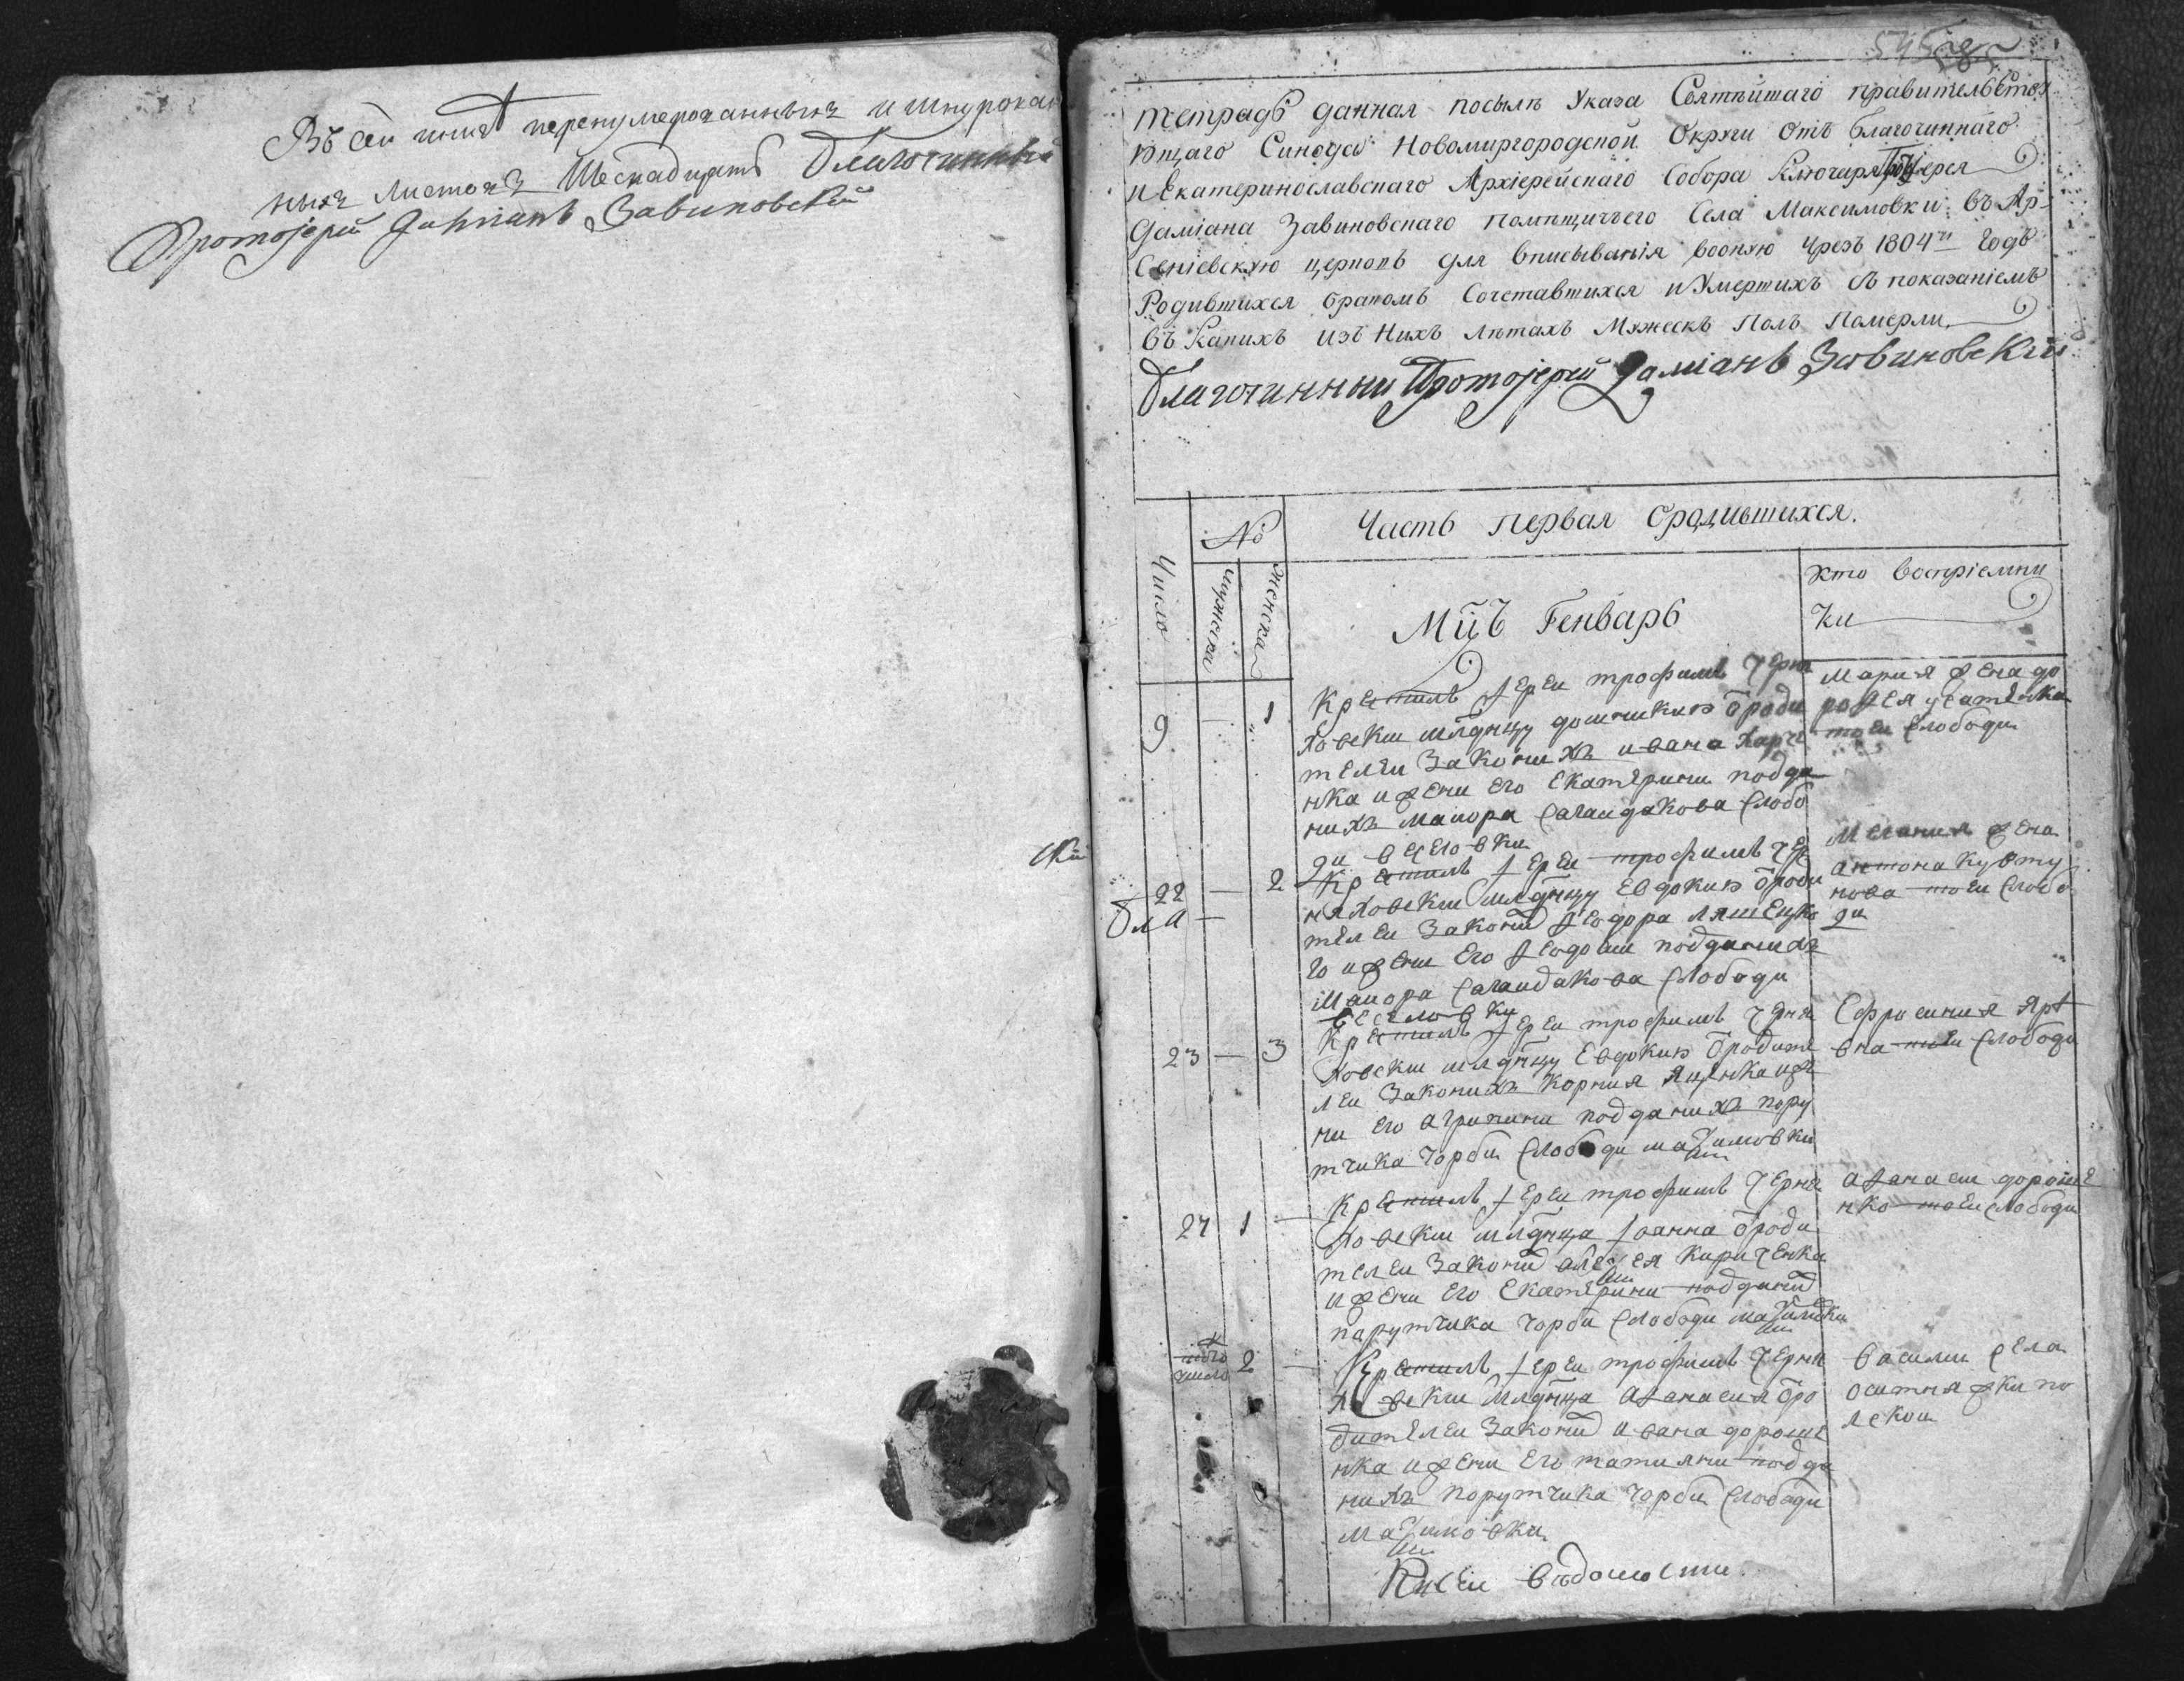 Въ сей книгѣ перенумерованныхъ и шнурован
ныхъ листовъ Шеснадцять Благочинный
Протоіерей Даміанъ Завиновскій
скій
545
тетрадь данная посылѣ Указа Святѣйшаго правительство
ющаго Синода Новомиргородской Округи отъ благочиннаго
и Екатеринославскаго Архіерейскаго Собора Ключаря Протоіерея
Даміана Завиновскаго помѣщичьего Села Максимовки въ Ар-
сеніевскую церковь для вписыванія вооную чрезъ 1804й годъ
Родившихся бракомъ Сочетавшихся и Умершихъ съ показаніемъ
въ Какихъ изъ Нихъ лѣтахъ Мужескъ Полъ Померли.
Благочинный Протоіерей Даміанъ Завиновскій
Часть первая ородившихся.
Число
№
мужеска
женска
Мцъ Генварь
кто воспріемни
ки
9 — 1
Крѣстилъ ѳерей трофимъ Черня
ховски младнцу домникию ѿ роди
телей Законихъ ивана Харче
нка и жени его Екатерини подда
нихъ маиора Сагайдакова Слобо
ди Веселовки
Мария жена до
рофея усатенка
тоей Слободи
22 — 2
бла —
Крѣстилъ ѳерей трофимъ Чер
няховски младнцу Евдокию ѿ роди
телей Закони ѳеодора ляшецко
го и жени его ѳеодосии подданихъ
Маиора Сагайдакова Слободи
Веселовки
Мелания жена
антона
нова тоей Слобо
ди
23 — 3
Крѣстилъ ѳерей трофимъ Черня
ховски младнцу Евдокию ѿ родите
лей Законихъ Корния Яценка и же
ни его агрипини подданихъ пору
тчика Чорби Слободи маѯимовки
Ефросиния Яре
вна тоей Слободи
27 1 —
Крѣстилъ ѳерей трофимъ Черня
ховски младнца ѳоанна ѿ роди
телей Закони алеѯея Кириченка
и жени его Екатерини поддани
порутчика Чорби Слободи маѯимовки
аѳанасий дороше
нко тоей Слободи
того
число 2 —
Крѣстилъ ѳерей трофимъ Черня
ховски младнца аѳанасия ѿ ро
дителей Закони ивана дороше
нка и жени его татияни подда
нихъ порутчика Чорби Слободи
маѯимовки
Василий села
оситняжки по
лской
Ксей Вѣдомости